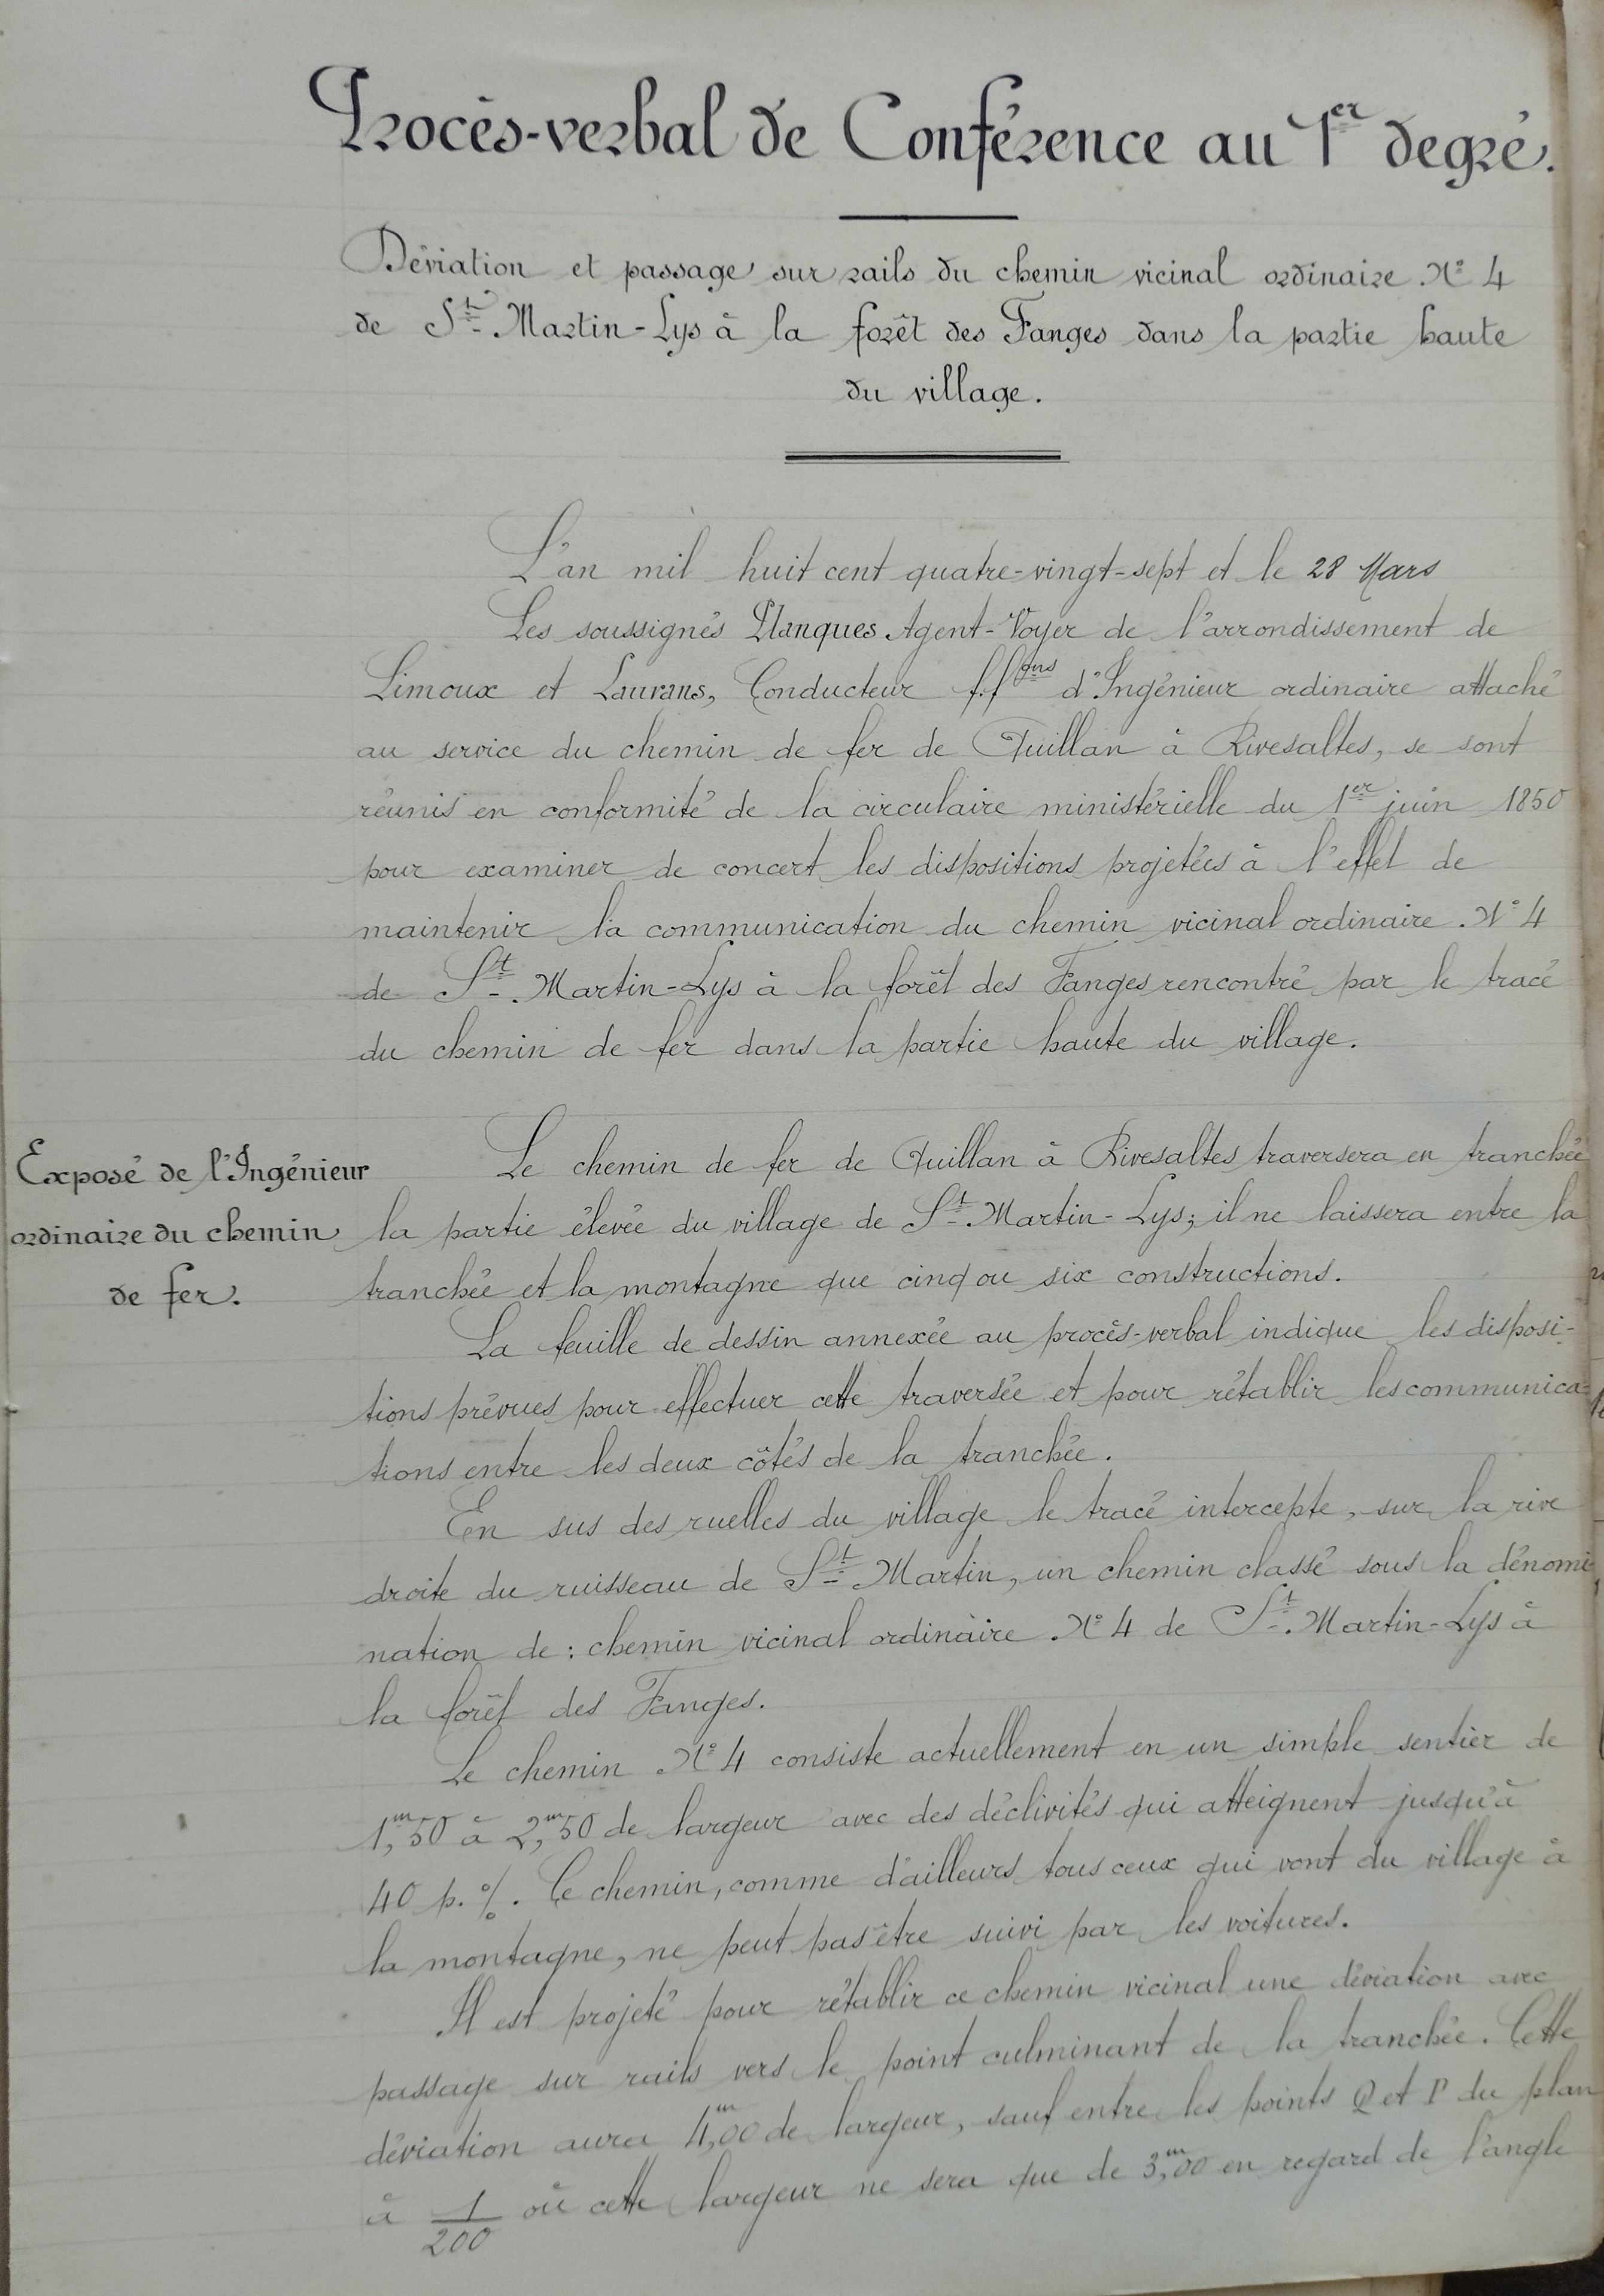 Procès-verbal de Conférence au 1er degré.
Déviation et passage sur rails du chemin vicinal ordinaire N° 4
de St Martin-Lys à la forêt des Fanges dans la partie haute
du village.
L'an mil huit cent quatre-vingt-sept et le 28 Mars
Les soussignés Planques Agent-Voyer de l'arrondissement de
Limoux et Laurans, Conducteur f.fons d'Ingénieur ordinaire attaché
au service du chemin de fer de Quillan à Rivesaltes, se sont
réunis en conformité de la circulaire ministérielle du 1er juin 1850
pour examiner de concert les dispositions projetées à l'effet de
maintenir la communication du chemin vicinal ordinaire N° 4
de St Martin-Lys à la forêt des Fanges rencontré par le tracé
du chemin de fer dans la partie haute du village.
Exposé de l'Ingénieur
ordinaire du chemin
de fer.
Le chemin de fer de Quillan à Rivesaltes traversera en tranchée
la partie élevée du village de St Martin-Lys; il ne laissera entre la
tranchée et la montagne que cinq ou six constructions.
La feuille de dessin annexée au procès-verbal indique les disposi-
tions prévues pour effectuer cette traversée et pour rétablir les communica-
tions entre les deux côtés de la tranchée.
En sus des ruelles du village le tracé intercepte, sur la rive
droite du ruisseau de St Martin, un chemin classé sous la dénomi
nation de : chemin vicinal ordinaire N° 4 de St Martin-Lys à
la forêt des Fanges.
Le chemin N° 4 consiste actuellement en un simple sentier de
1,m50 à 2,m50 de largeur avec des déclivités qui atteignent jusqu'à
40 p. %. Ce chemin, comme d'ailleurs tous ceux qui vont du village à
la montagne, ne peut pas être suivi par les voitures.
Il est projeté pour rétablir ce chemin vicinal une déviation avec
passage sur rails vers le point culminant de la tranchée. Cette
déviation aura 4,m00 de largeur, sauf entre les points Q et P du plan
à 1/200 où cette largeur ne sera que de 3,m00 en regard de l'angle